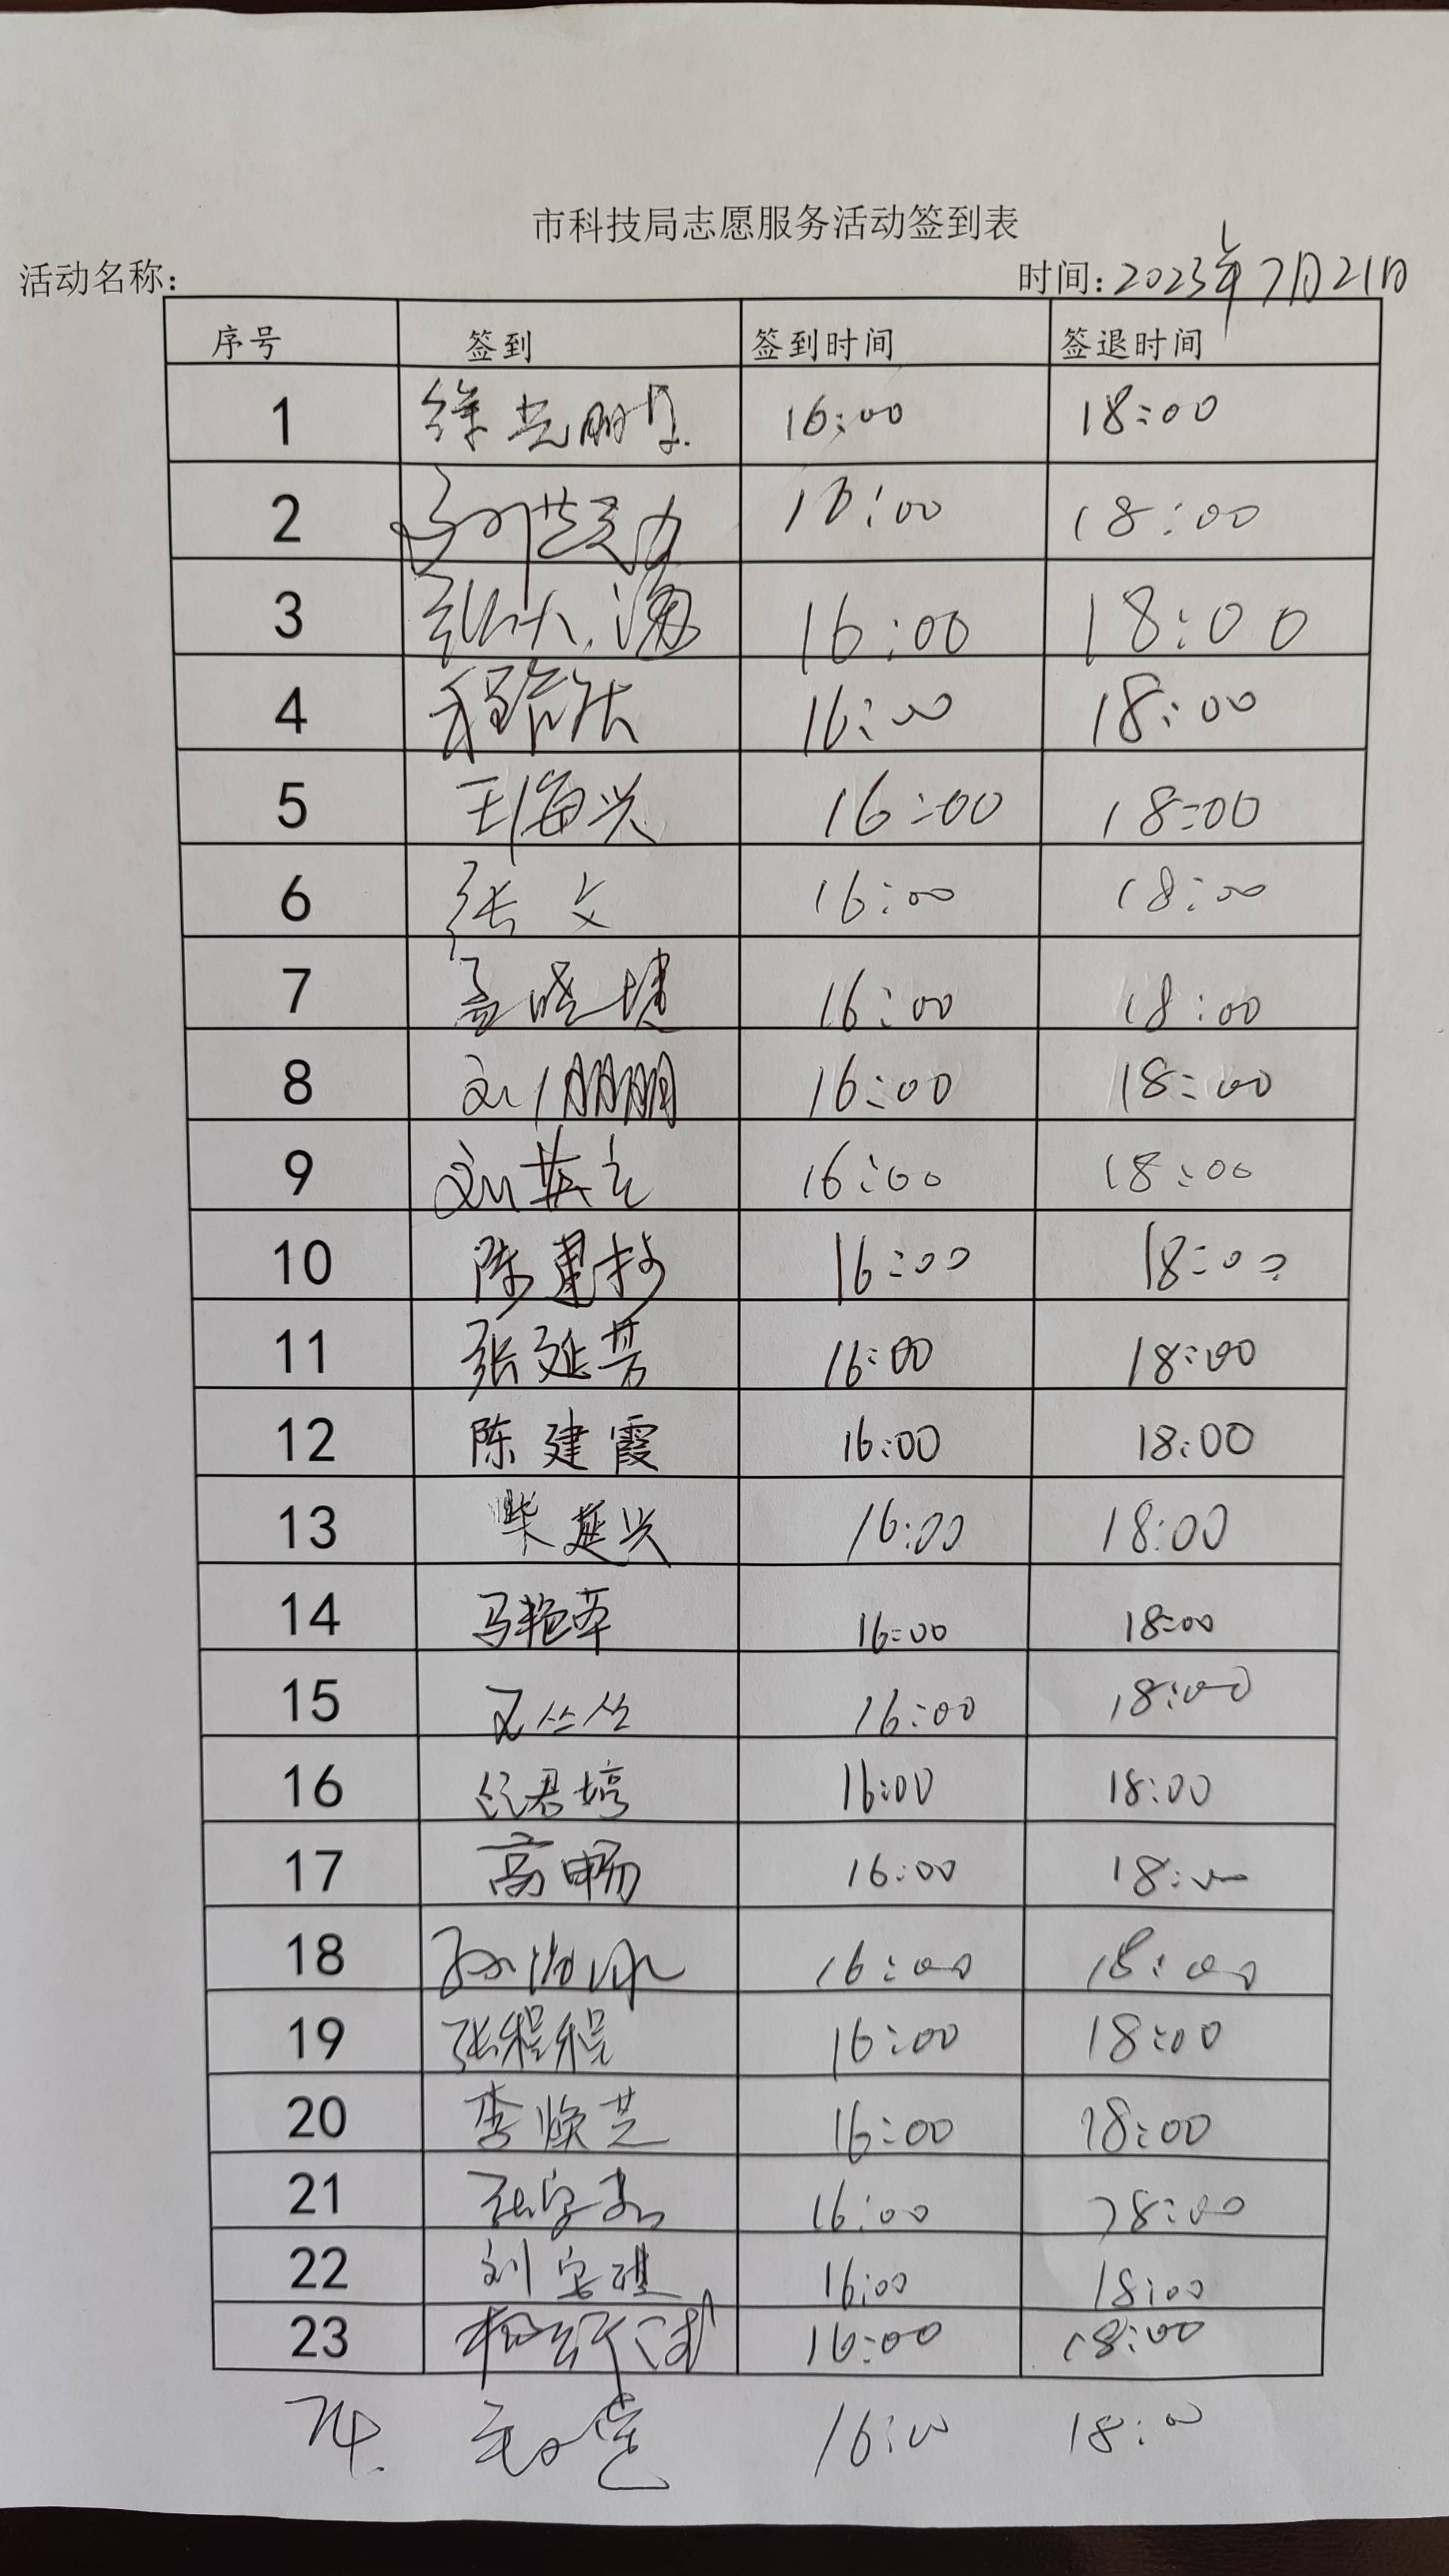 市科技局志愿服务活动签到表
活动名称: 时间:2023年7月21日
序号 签到 签到时间 签退时间
1 16:00 18:00
2 16:00 18:00
3 16:00 18:00
4 16:00 18:00
5 王海兴 16:00 18:00
6 张文 16:00 18:00
7 孟晓婕 16:00 18:00
8 刘朋朋 16:00 18:00
9 刘英 16:00 18:00
10 陈 16:00 18:00
11 张延芳 16:00 18:00
12 陈建霞 16:00 18:00
13 柴延兴 16:00 18:00
14 马艳苹 16:00 18:00
15 丛丛 16:00 18:00
16 任君婷 16:00 18:00
17 高畅 16:00 18:00
18 孙 16:00 18:00
19 张程程 16:00 18:00
20 李焕芝 16:00 18:00
21 16:00 18:00
22 刘 16:00 18:00
23 16:00 18:00
24. 16:00 18:00